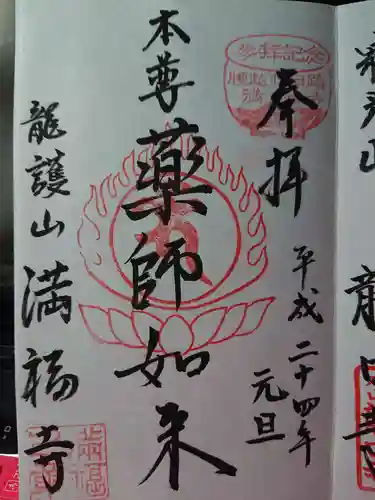 奉拝
平成二十四年
元旦
本尊
薬師如来
龍護山
満福寺
参拝記念
満福